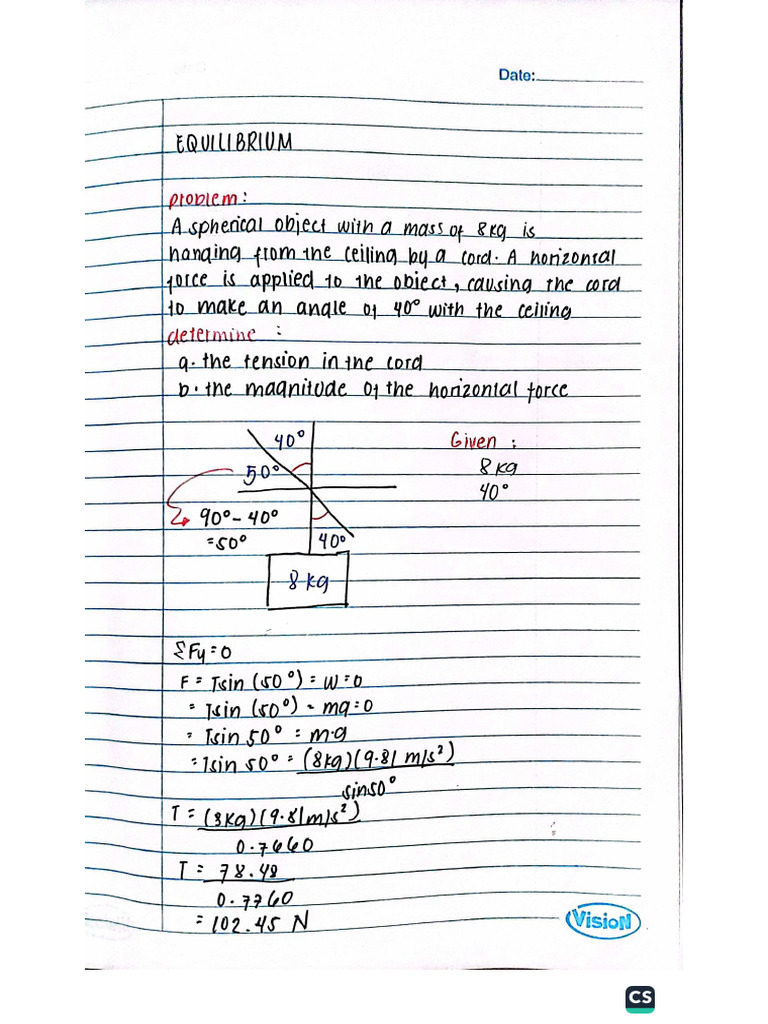 Date:
EQUILIBRIUM
problem:
A spherical object with a mass of 8kg is
hanging from the ceiling by a cord. A horizontal
force is applied to the object, causing the cord
to make an angle of 40° with the ceiling
determine:
a. the tension in the cord
b. the magnitude of the horizontal force
40°
Given:
50°
8kg
40°
90°-40°
=50°
40°
8kg
ΣFy=0
F = Tsin (50°) = W=0
= Tsin (50°) - mg=0
= Tsin 50° = m·g
= Tsin 50° = (8kg)(9.81 m/s²)
sin50°
T = (8kg)(9.81m/s²)
0.7660
T = 78.48
0.7760
= 102.45 N
VisioN
CS